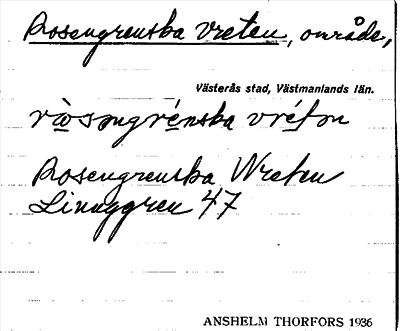 Rosengrenska vreten, område,
Västerås stad, Västmanlands län.
ròsəngrénska vrétən
Rosengrenska Wreten
Linnggren 47
ANSHELM THORFORS 1936